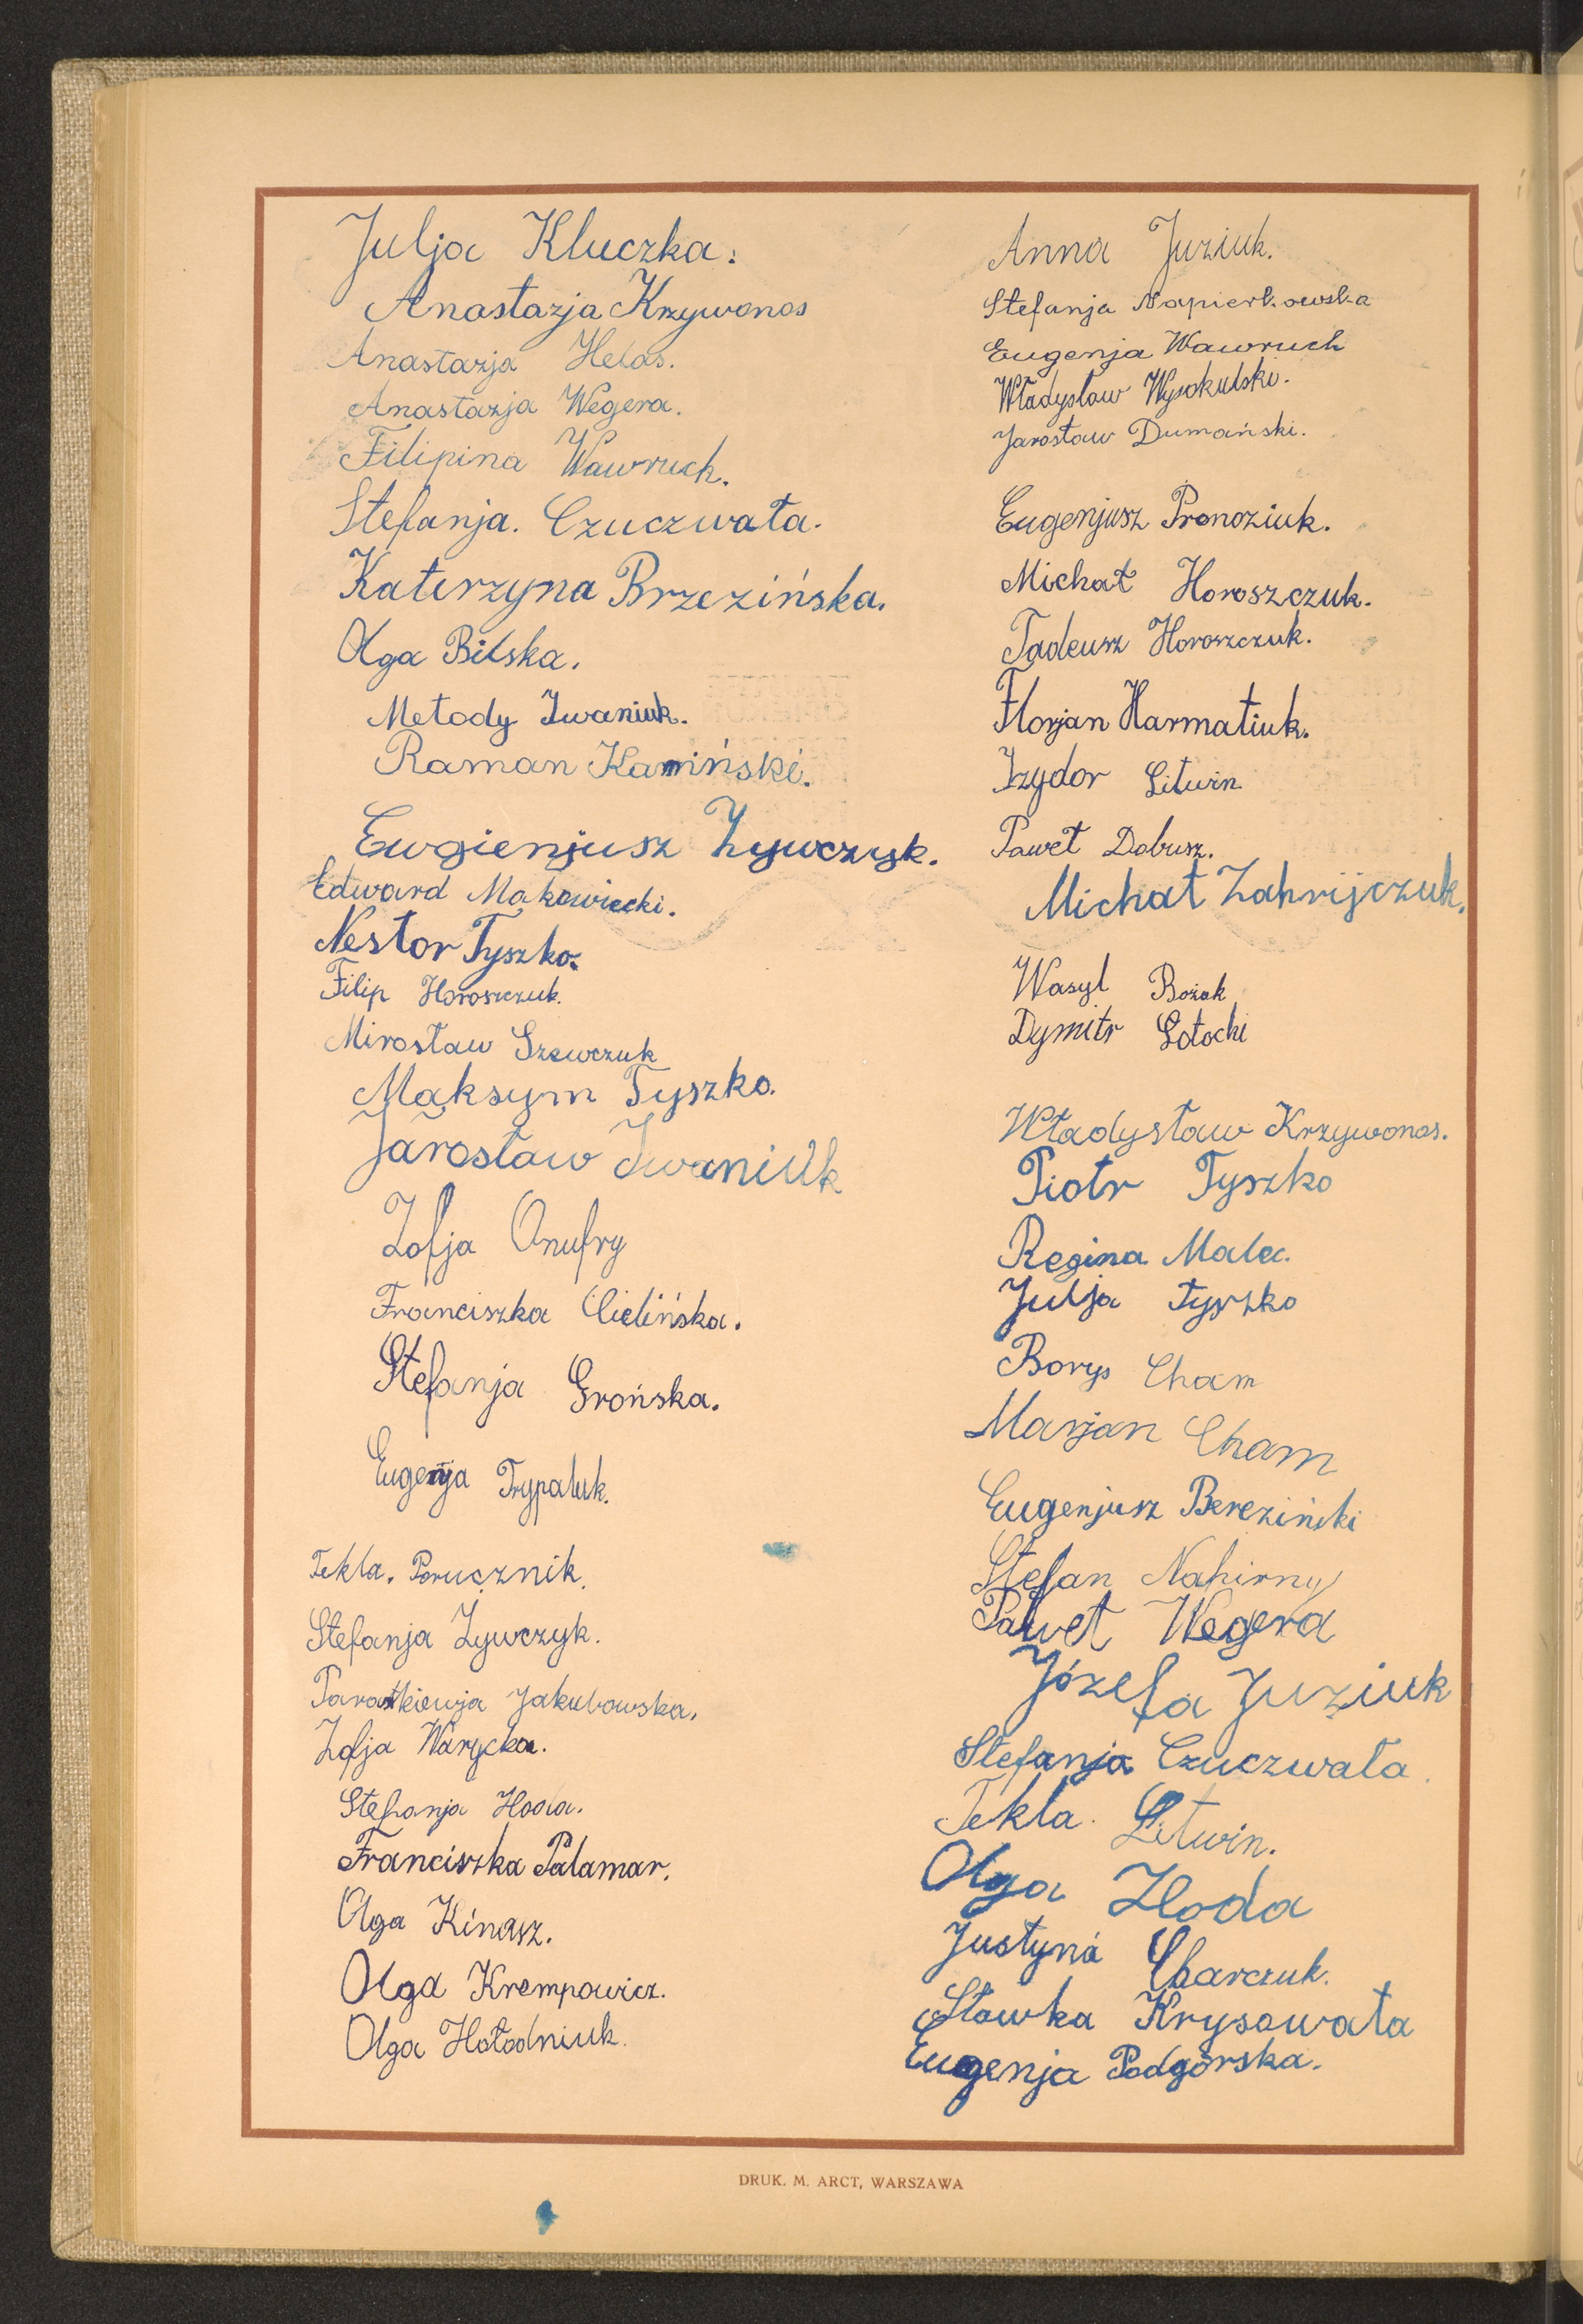 Julja Kluczka.
Anastazja Krzywonos
Anastazja Helas.
Anastazja Wegera.
Filipina Wawruch.
Stefanja. Czuczwała.
Katerzyna Brzezińska.
Olga Bilska.
Metody Iwaniuk.
Raman Kamiński.
Ewgienjusz Żywczyk.
Edward Makowiecki.
Nestor Tyszko.
Filip Horoszczuk.
Mirosław Szewczuk
Maksym Tyszko.
Jarosław Iwaniuk
Zofja Onufry
Franciszka Cielińska.
Stefanja Grońska.
Eugenja Trypaluk.
Tekla. Porucznik.
Stefanja Żywczyk.
Paraskiewja Jakubowska.
Zofja Warycka.
Stefanja Hoda.
Franciszka Palamar.
Olga Kinasz.
Olga Krempowicz.
Olga Hołodniuk.
Anna Juziuk.
Stefanja Napierkowska
Eugenja Wawruch
Władysław Wysokulski.
Jarosław Dumański.
Eugenjusz Pronoziuk.
Michał Horoszczuk.
Tadeusz Horoszczuk.
Florjan Harmatiuk.
Izydor Litwin
Paweł Dobusz.
Michał Zahrijczuk.
Wasyl Bożak
Dymitr Łotocki
Władysław Krzywonos.
Piotr Tyszko
Regina Malec.
Julja Tyszko
Borys Cham
Marjan Cham
Eugenjusz Bereziński
Stefan Nahirny
Paweł Wegera
Józefa Juziuk
Stefanja Czuczwała.
Tekla. Litwin.
Olga Hoda
Justyna Charczuk.
Sławka Krysowata
Eugenja Podgórska.
DRUK. M. ARCT, WARSZAWA